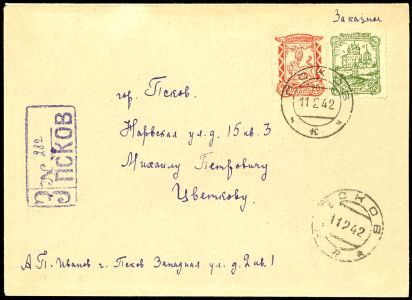 Заказное
гор. Псков.
Нарвская ул. д. 15 кв. 3
Михаилу Петровичу
Цветкову.
З № 282
ПСКОВ
ПСКОВ
11 2 42
ПСКОВ
11 2 42
А.П. Иванов г. Псков Западная ул. д. 2 кв. 1